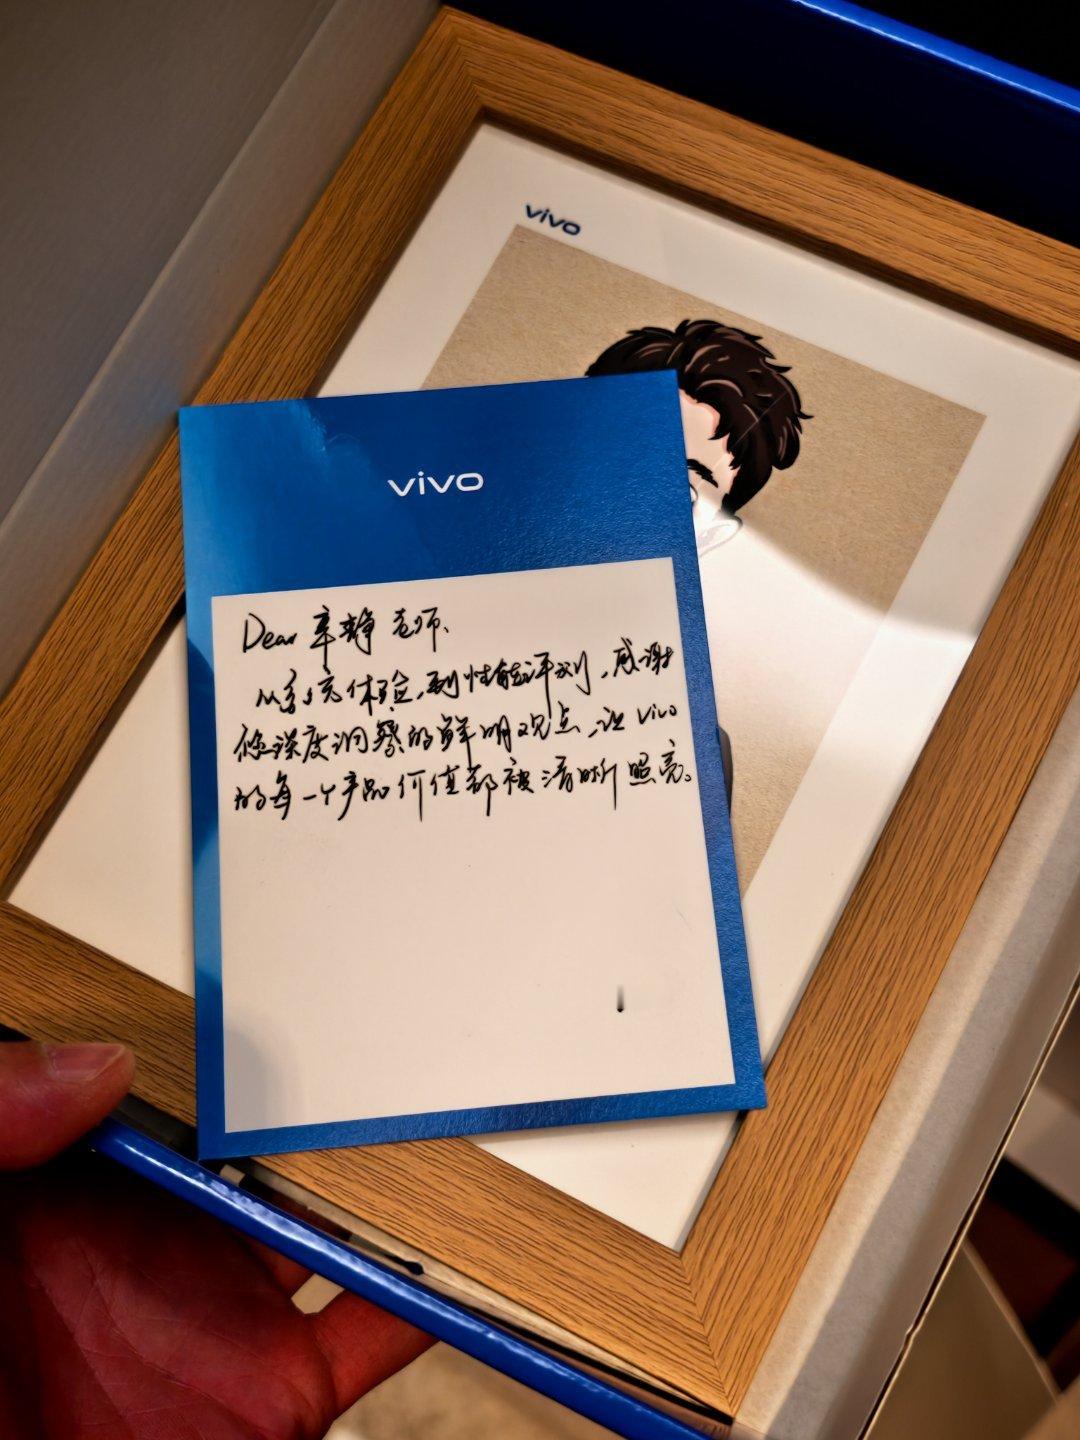 vivo
vivo
Dear 辛静 老师、
从系统体验,到性能评测,感谢
您深度洞察的鲜明观点,让 vivo
的每一个产品价值都被清晰照亮。